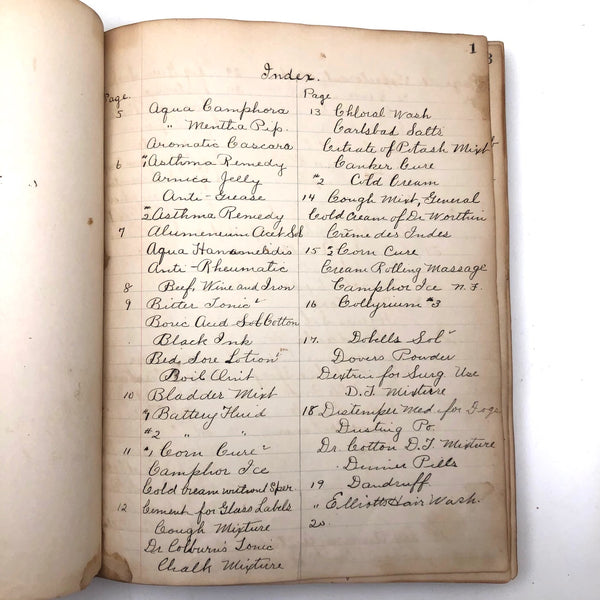 1
3
Index.
Page.
5 Aqua Camphora
" Mentha Pip.
Aromatic Cascara
6 #1 Asthma Remedy
Arnica Jelly
Anti-Grease
#2 Asthma Remedy
7 Alumeneium Acet Sol
Aqua Hamamelidis
Anti-Rheumatic
8 Beef, Wine and Iron
9 Bitter Tonic
Boric Acid Sol Cotton
Black Ink
Bed Sore Lotion
Boil Oint
10 Bladder Mixt
#1 Battery Fluid
#2 " "
11 #1 Corn Cure
Camphor Ice
Cold Cream without Sper.
12 Cement for Glass Labels
Cough Mixture
Dr Colburn's Tonic
Chalk Mixture
Page
13 Chloral Wash
Carlsbad Salts
Citrate of Potash Mixt
Canker Cure
#2 Cold Cream
14 Cough Mixt, General
Cold Cream of Dr Worthin
Crême des Indes
15 #2 Corn Cure
Cream Rolling Massage
Camphor Ice N.F.
16 Collyrium #3
17. Dobells Sol
Dovers Powder
Dextrin for Surg. Use
D.T. Mixture
18 Distemper Med. for Dogs
Dusting Po.
Dr. Cotton D.T. Mixture
Dinner Pills
19 Dandruff
" Elliotts Hair Wash.
20.